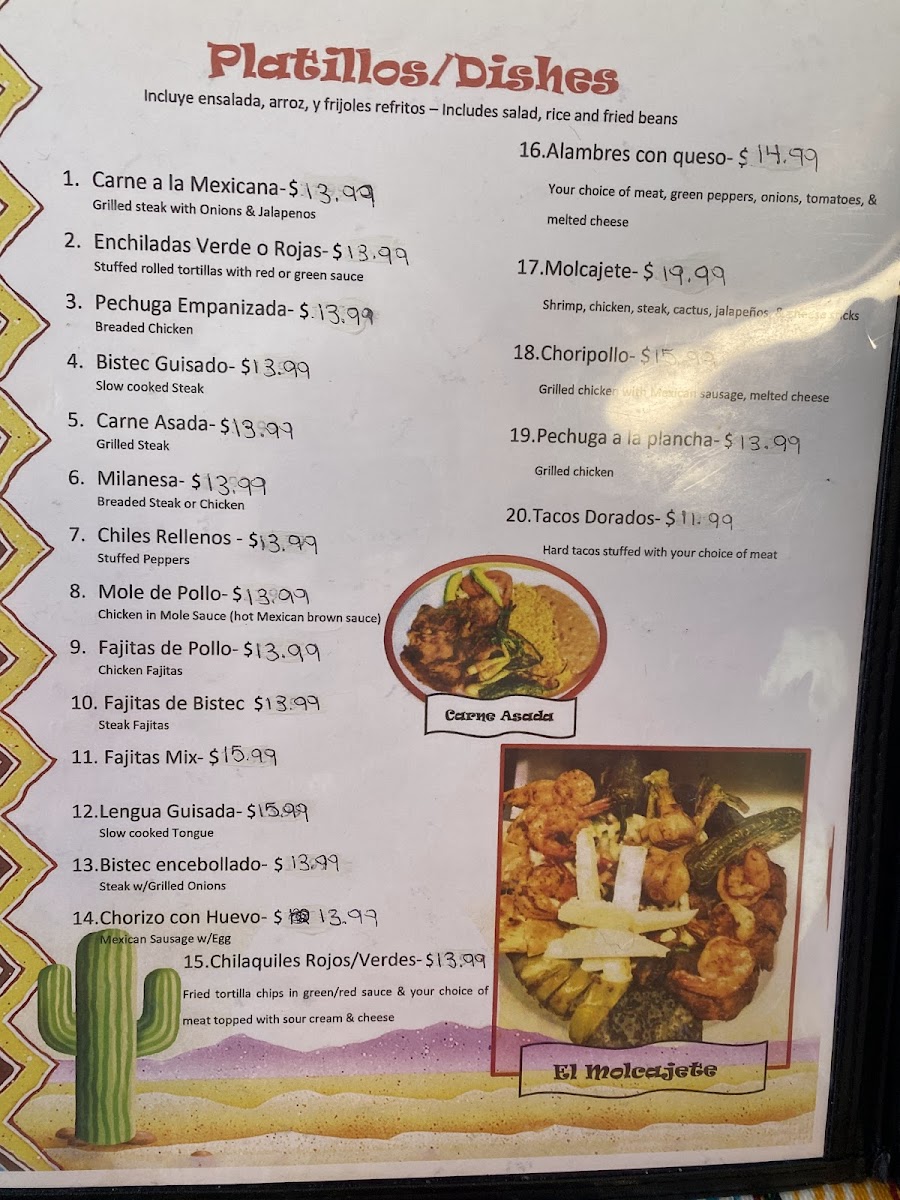 Platillos/Dishes
Incluye ensalada, arroz, y frijoles refritos – Includes salad, rice and fried beans
1. Carne a la Mexicana-$ 13.99
Grilled steak with Onions & Jalapenos
2. Enchiladas Verde o Rojas- $ 13.99
Stuffed rolled tortillas with red or green sauce
3. Pechuga Empanizada- $ 13.99
Breaded Chicken
4. Bistec Guisado- $13.99
Slow cooked Steak
5. Carne Asada- $13.99
Grilled Steak
6. Milanesa- $ 13.99
Breaded Steak or Chicken
7. Chiles Rellenos - $13.99
Stuffed Peppers
8. Mole de Pollo- $13.99
Chicken in Mole Sauce (hot Mexican brown sauce)
9. Fajitas de Pollo- $13.99
Chicken Fajitas
10. Fajitas de Bistec $13.99
Steak Fajitas
11. Fajitas Mix- $15.99
12.Lengua Guisada- $15.99
Slow cooked Tongue
13.Bistec encebollado- $ 13.99
Steak w/Grilled Onions
14.Chorizo con Huevo- $ 13.99
Mexican Sausage w/Egg
15.Chilaquiles Rojos/Verdes- $13.99
Fried tortilla chips in green/red sauce & your choice of
meat topped with sour cream & cheese
16.Alambres con queso- $ 14.99
Your choice of meat, green peppers, onions, tomatoes, &
melted cheese
17.Molcajete- $ 19.99
Shrimp, chicken, steak, cactus, jalapeños, & cheese sticks
18.Choripollo- $15.99
Grilled chicken with Mexican sausage, melted cheese
19.Pechuga a la plancha- $ 13.99
Grilled chicken
20.Tacos Dorados- $ 11.99
Hard tacos stuffed with your choice of meat
Carne Asada
El Molcajete